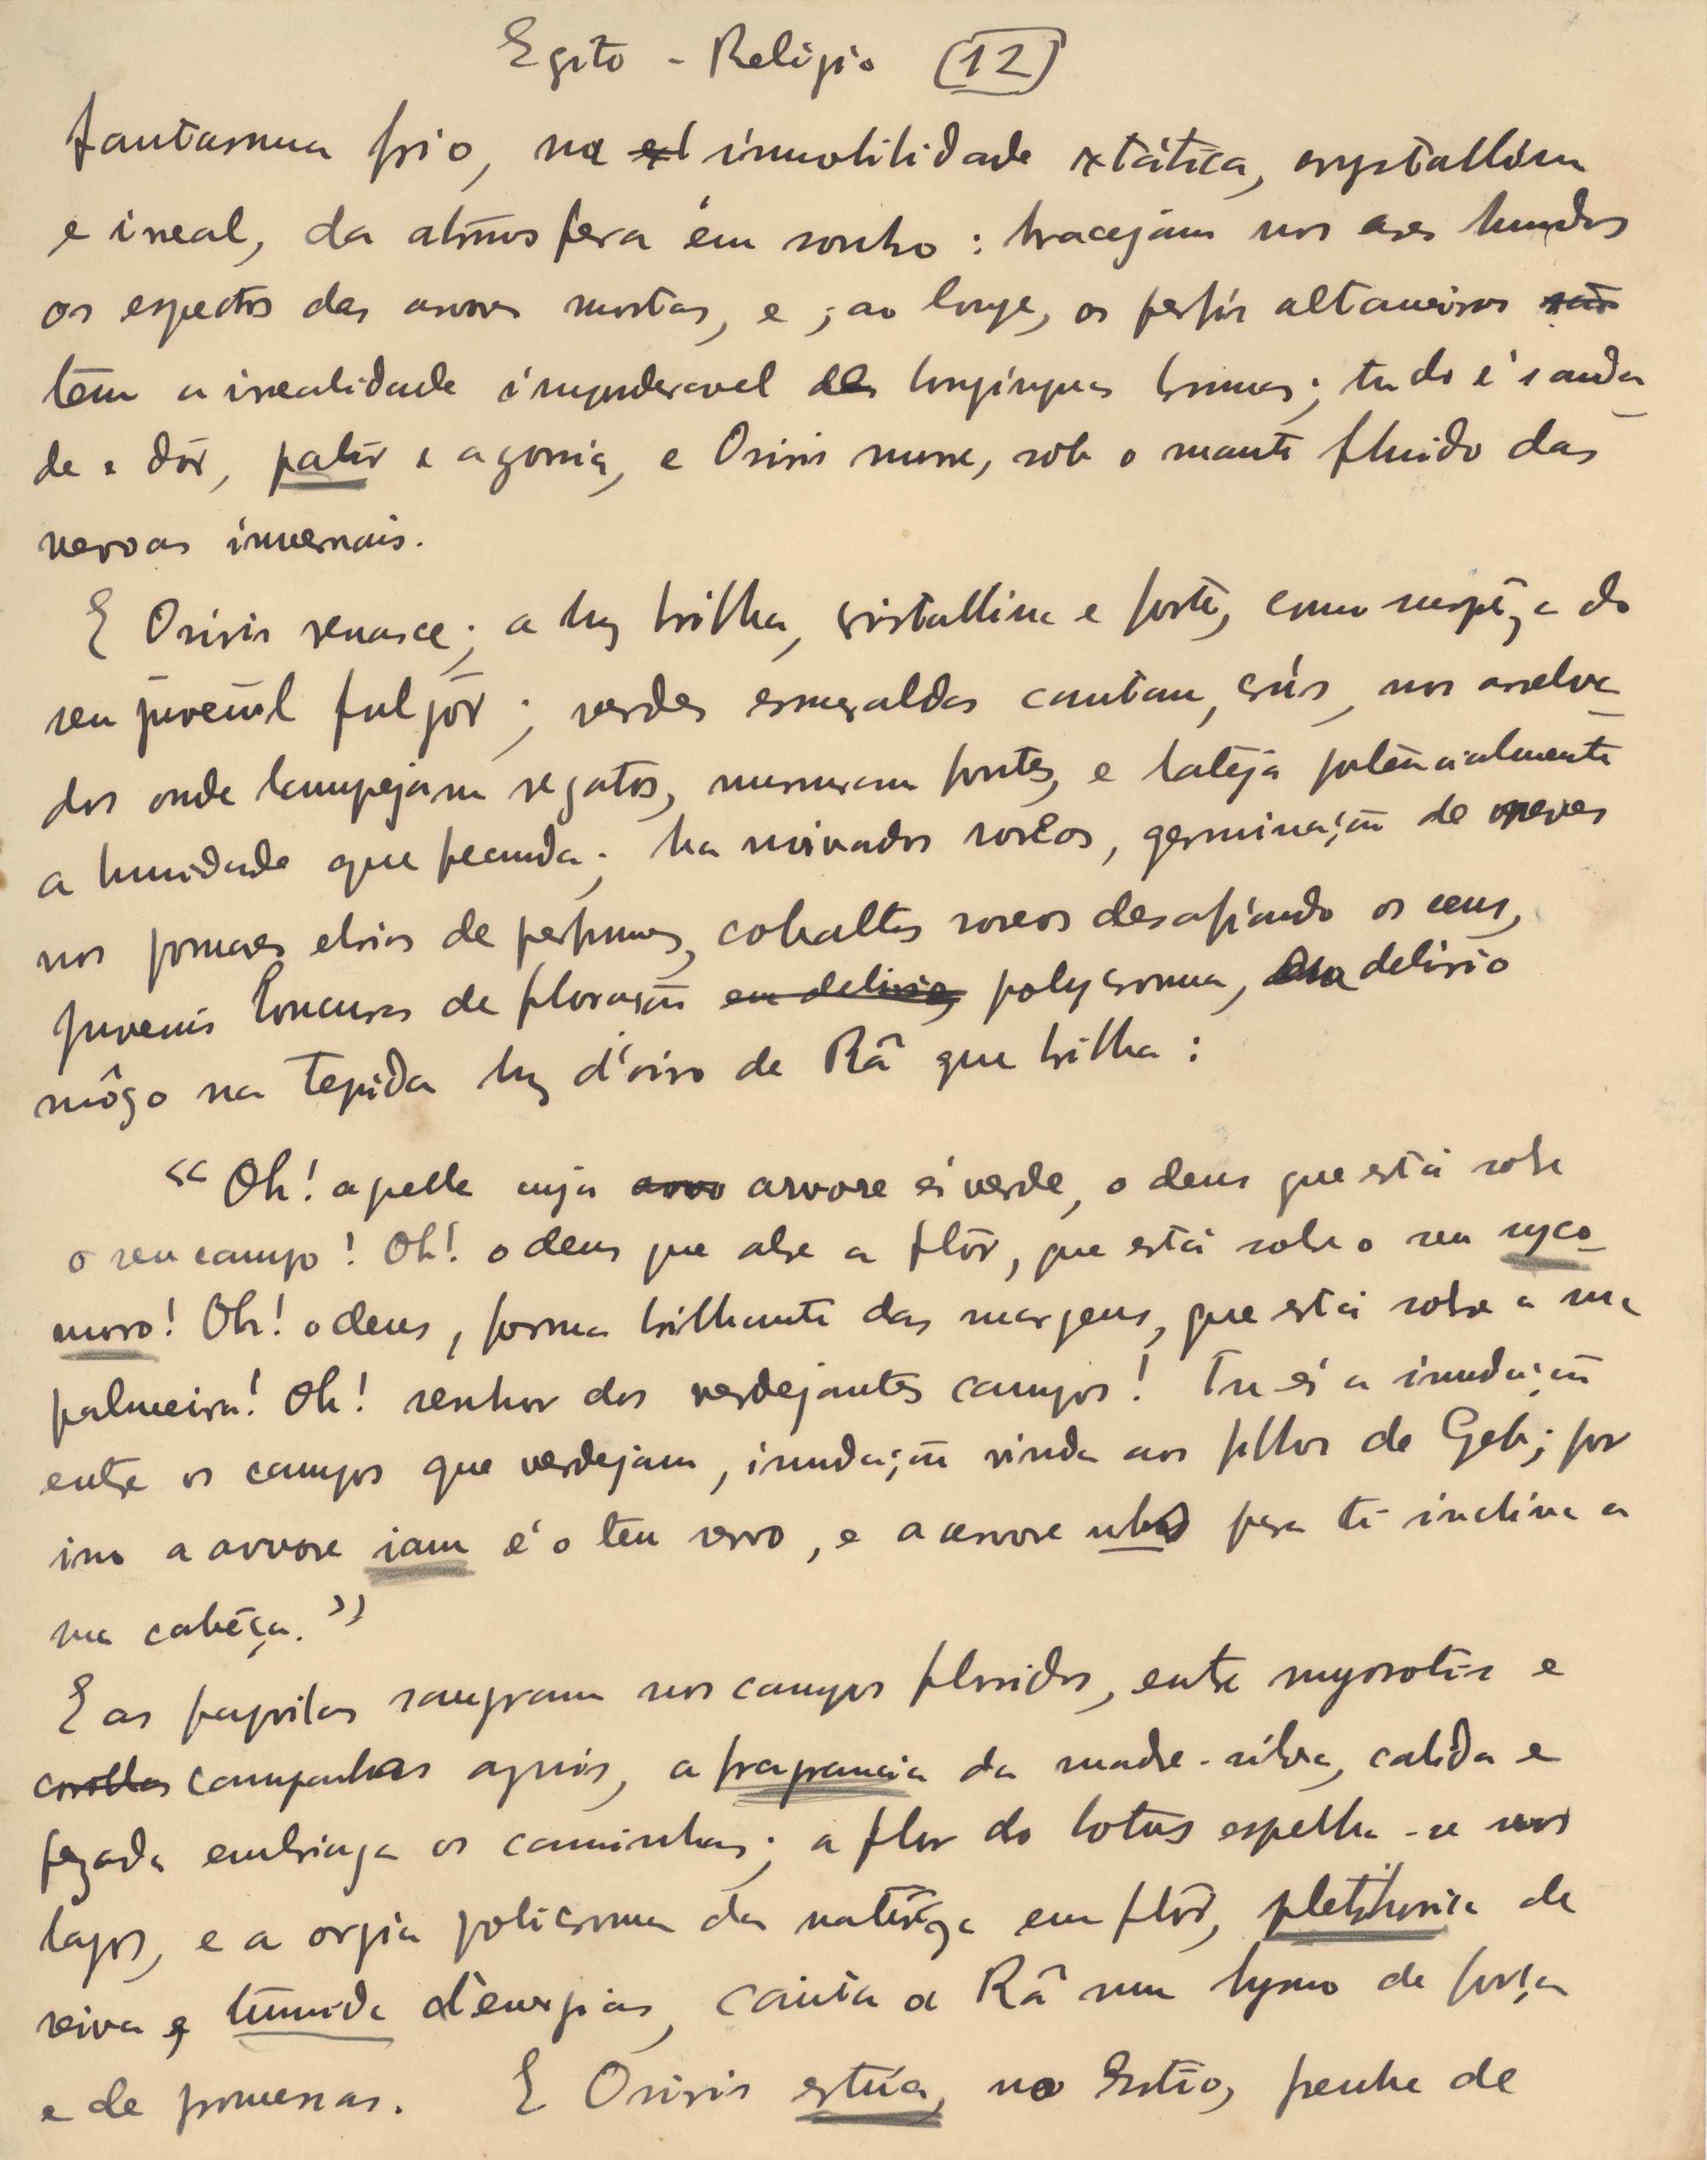 Egito - Religio (12)
fantasma frio, na immobilidade extática, crystallina
e irreal, da atmosfera em sonho: bracejam nos ares humidos
os espectos das arvores mortas, e, ao longe, os perfis altaneiros
têm a irrealidade imponderavel das longinquas brumas; tudo é sauda-
de e dôr, palôr e agonia, e Osiris morre, sob o manto fluido das
nevoas invernais.
E Osiris renasce; a luz brilha, cristallina e forte, como surpêza do
seu juvenil fulgôr; verdes esmeraldas cantam, crús, nos arrelva-
dos onde lampejam regatos, murmuram fontes, e lateja potencialmente
a humidade que fecunda; ha noivados roseos, germinação de
nos pomares ebrios de perfumes, cobaltos roseos desafiando os ceus,
juvenis loucuras de floração polycroma, em delirio
môço na tepida luz d'oiro de Râ que brilha:
"Oh! aquelle cuja arvore é verde, o deus que está sobre
o seu campo! Oh! o deus que abre a flôr, que está sobre o seu syco-
moro! Oh! o deus, forma brilhante das margens, que está sobre a sua
palmeira! Oh! senhor dos verdejantes campos! Tu és a inundação
entre os campos que verdejam, inundação vinda aos filhos de Geb; por
isso a arvore iam é o teu servo, e a arvore nbs para ti inclina a
sua cabêça."
E as papoilas sangram nos campos floridos, entre myosotis e
campanhas azuis, a fragrancia da madre-silva, calida e
pezada embriaga os caminhos; a flor do lotus espelha-se nos
lagos, e a orgia policroma da naturêza em flôr, plethorica de
seiva e, tumida d'energias, canta a Râ num hymno de força
e de promessas. E Osiris estúa, no Estio, prenhe de